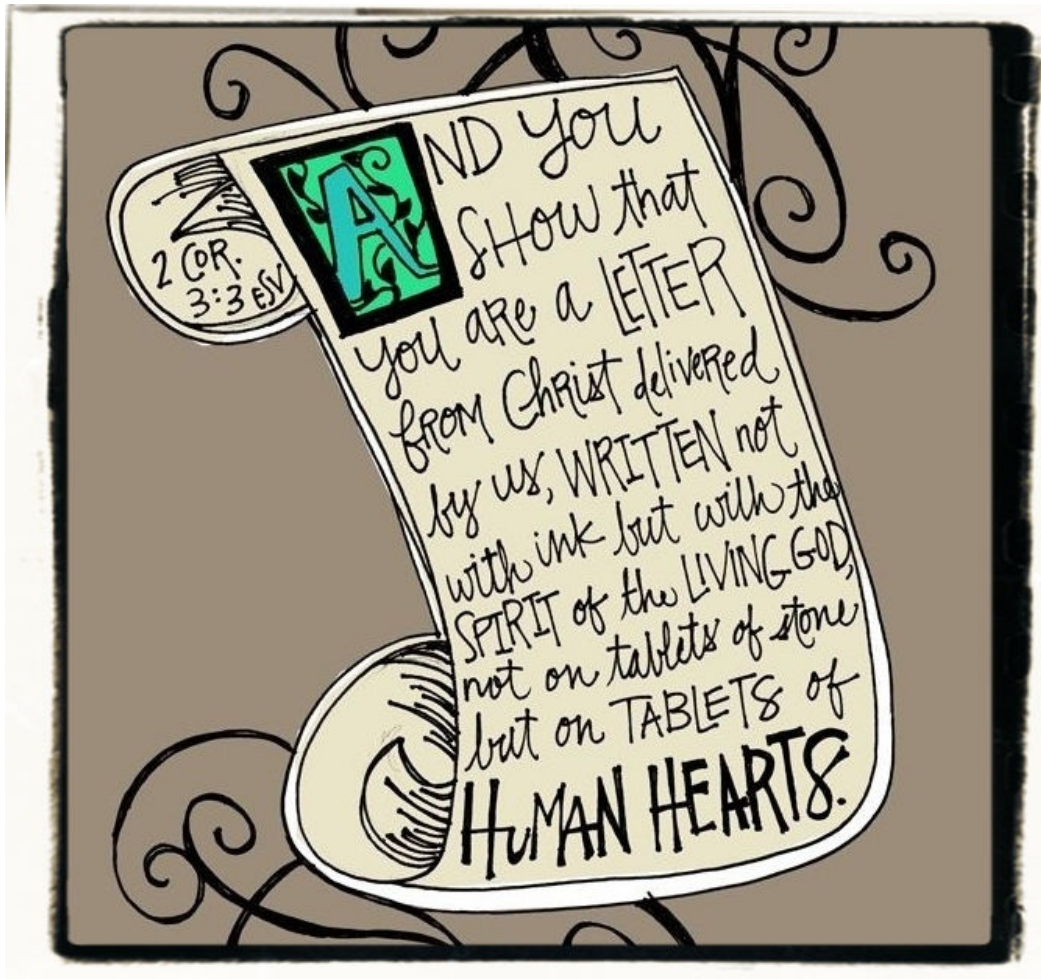 AND you
SHOW that
you are a LETTER
from Christ delivered
by us, WRITTEN not
with ink but with the
SPIRIT of the LIVING GOD,
not on tablets of stone
but on TABLETS of
HUMAN HEARTS.
2 COR.
3:3 ESV